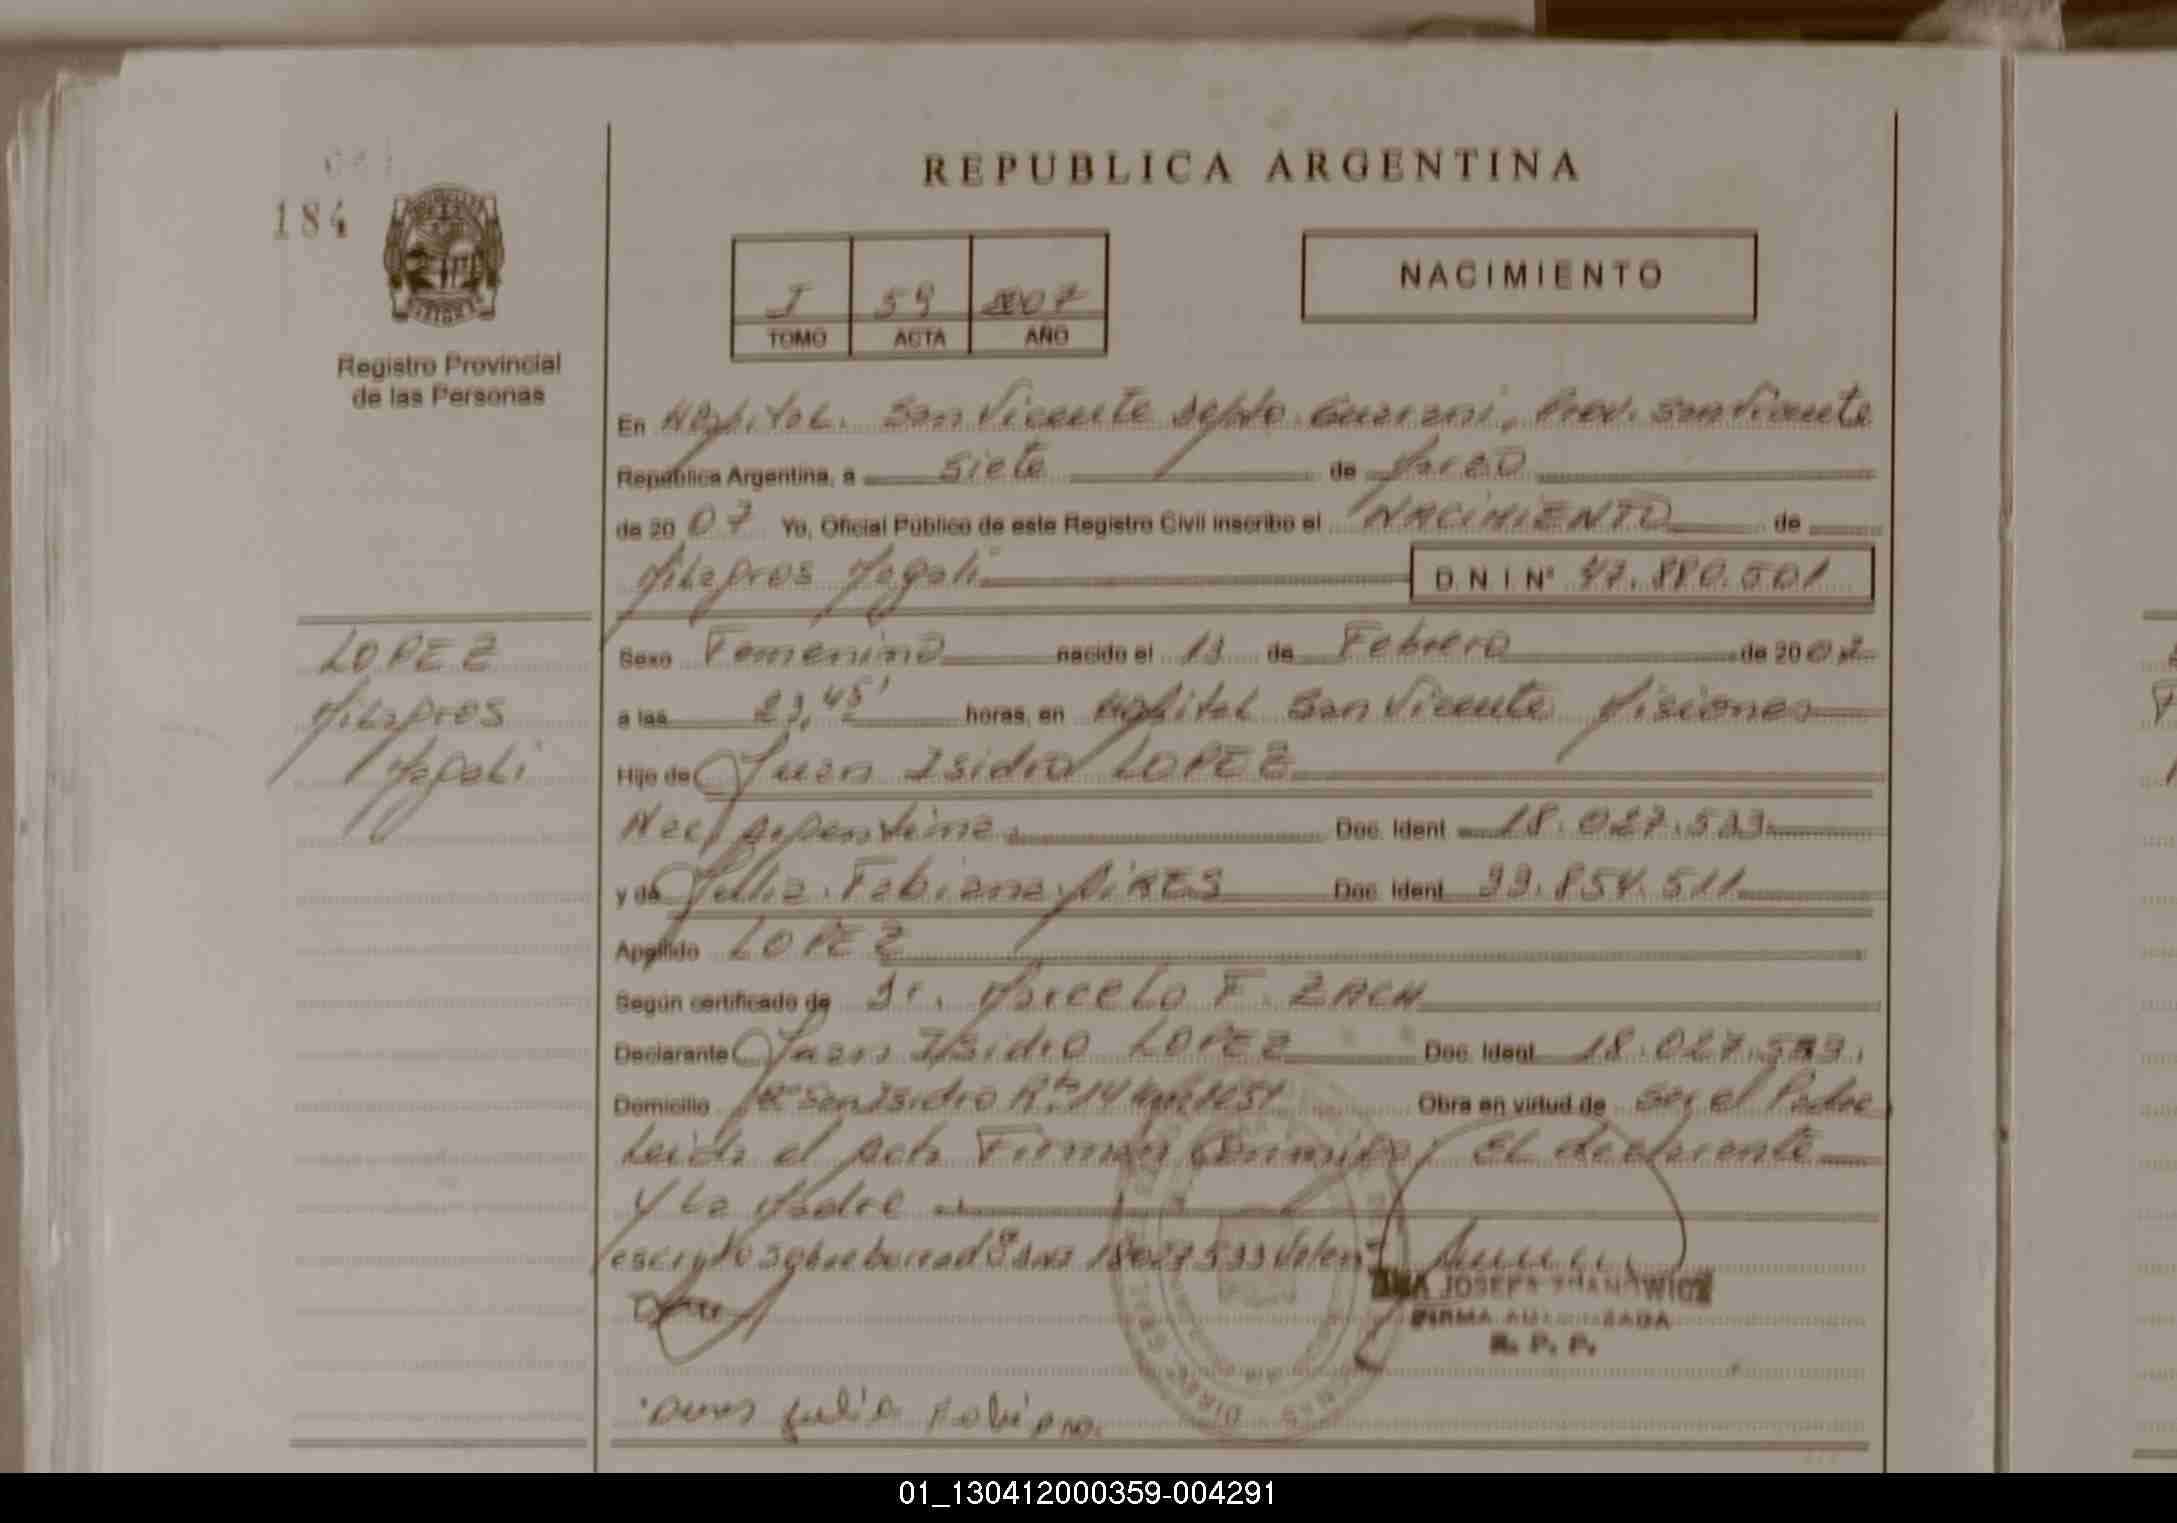 184
REPUBLICA ARGENTINA
NACIMIENTO
I 59 2007
TOMO ACTA AÑO
Registro Provincial
de las Personas
En Hospital. San Vicente Depto. Guarani, Prov. San Vicente
Republica Argentina, a Siete de Marzo
de 20 07 Yo, Oficial Público de este Registro Civil inscribo el NACIMIENTO de
Milagros Magali D N I Nº 47.880.501
LOPEZ
Milagros
Magali
Sexo Femenino nacido el 13 de Febrero de 20 07
a las 23,45' horas, en Hospital San Vicente Misiones
Hijo de Juan Isidro LOPEZ
Nac. Argentina Doc. Ident 18.027.533
y de Julia Fabiana Doc. Ident 33.854.511
Apellido LOPEZ
Según certificado de Dr. Marcelo F. ZACH
Declarante Juan Isidro LOPEZ Doc. Ident 18.027.533.
Domicilio San Isidro 14 1251 Obra en virtud de Ser el Padre
Leida el Acta Firman Conmigo, El declarante
y La Madre
escrito sobre borrado 18027533 Valen
JOSEFA
FIRMA AUTORIZADA
R. P. P.
Julia Fabiana
01_130412000359-004291